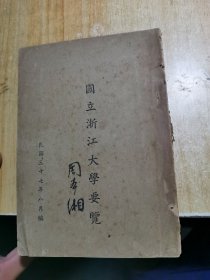 國立浙江大學要覽
周本湘
民國三十七年八月編